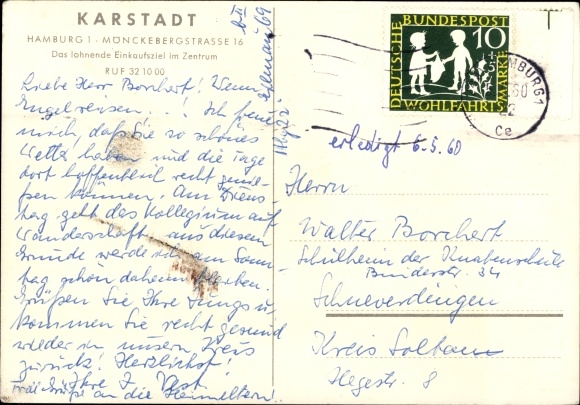 KARSTADT
HAMBURG 1 · MÖNCKEBERGSTRASSE 16
Das lohnende Einkaufsziel im Zentrum
RUF 32 10 00
Liebe Herr Borchert! Wenn
Engel reisen..! Ich freue
mich, daß Sie so schönes
Wetter haben und die Tage
dort hoffentlich recht genie-
ßen können. Am Diens-
tag geht das Kollegium auf
Wanderschaft, aus diesem
Grunde werde ich am Sonn-
tag schön daheim bleiben.
Grüßen Sie Ihre Jungs u.
kommen Sie recht gesund
wieder in unsern Kreis
zurück! Herzlichst!
Ihre J.
Grüße an die Heimeltern.
DEUTSCHE BUNDESPOST
10
+5
WOHLFAHRTSMARKE
HAMBURG 1
60
22
Ce
erledigt 6.5.60
Herrn
Walter Borchert
Schulheim der Knabenschule
34
Schneverdingen
Kreis Soltau
Hegestr. 8